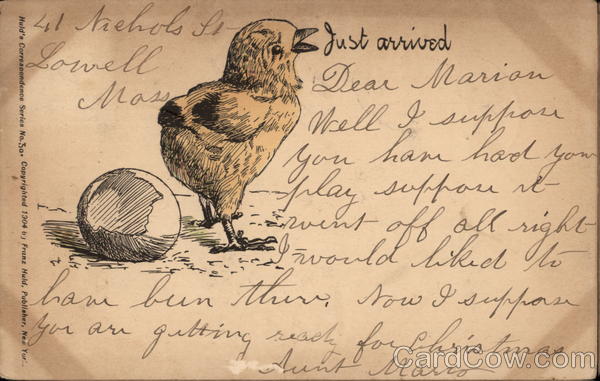 41 Nichols St
Lowell
Mass
Just arrived
Dear Marion
Well I suppose
you have had your
play suppose it
went off all right
I would liked to
have been there. Now I suppose
you are getting ready for Christmas
Aunt
Huld's Correspondence Series No. 3a. Copyrighted 1904 by Franz Huld, Publisher, New York
CardCow.com